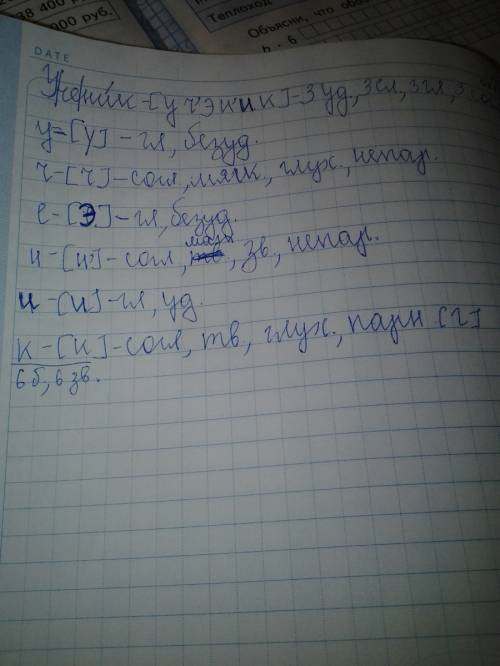 38 400
000 руб.
Теплоход
Объясни, что обоз
b · 6
DATE
Ученик - [у ч э н' и к] - 3 уд, 3 сл, 3 гл, 3
у = [у] - гл, безуд.
ч - [ч] - согл, мягк, глух., непар.
е - [э] - гл, безуд.
н - [н'] - согл, мягк, зв, непар.
и - [и] - гл, уд.
к - [к] - согл, тв, глух., парн [г]
6 б, 6 зв.